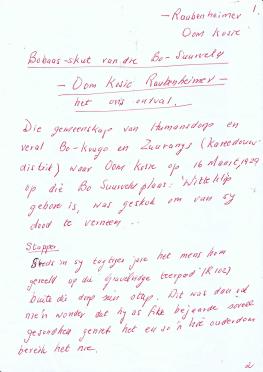 1
- Raubenheimer
Oom Kosie
Bobaas-skut van die Bo-Suurveld
- Oom Kosie Raubenheimer -
het ons ontval.
Die gemeenskap van Humansdorp en
veral Bo-Kouga en Zuuranys (Kareedouw-
distrik) waar Oom Kosie op 16 Maart, 1929
op die Bo Suurveld plaas: 'Witteklip
gebore is, was geskok om van sy
dood te verneem.
Stapper
in sy tagtiger jare het mens hom
gereeld op die teerpad (R102)
buite die dorp sien stap. Dit was dan ook
nie 'n wonder dat hy as bejaarde soveel
gesondheid geniet het en so 'n hoë ouderdom
bereik het nie.